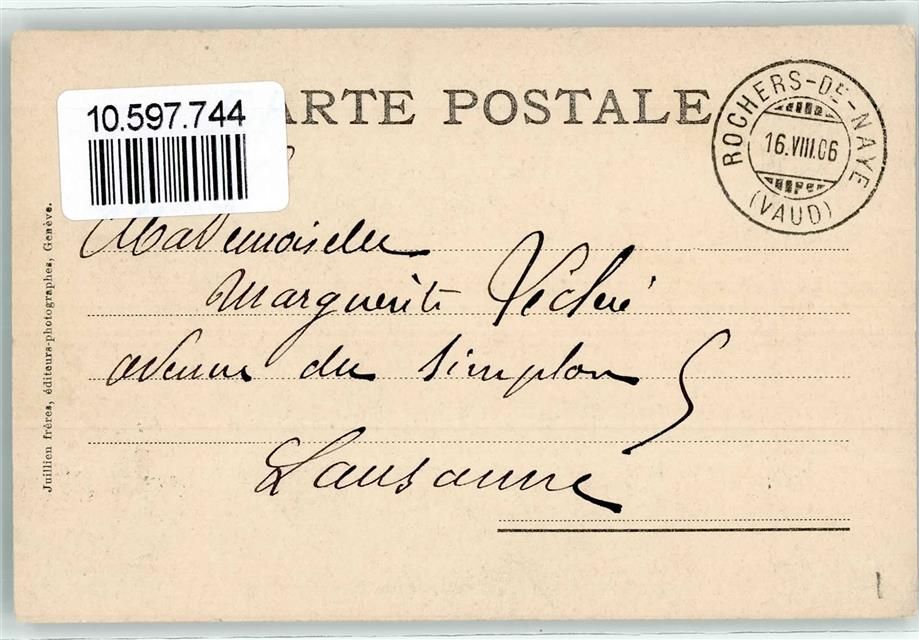 CARTE POSTALE
10.597.744
ROCHERS-DE-NAYE
16.VIII.06
(VAUD)
Mademoiselle
Marguerite
avenue du Simplon 5
Lausanne
Juillien frères, éditeurs-photographes, Genève.